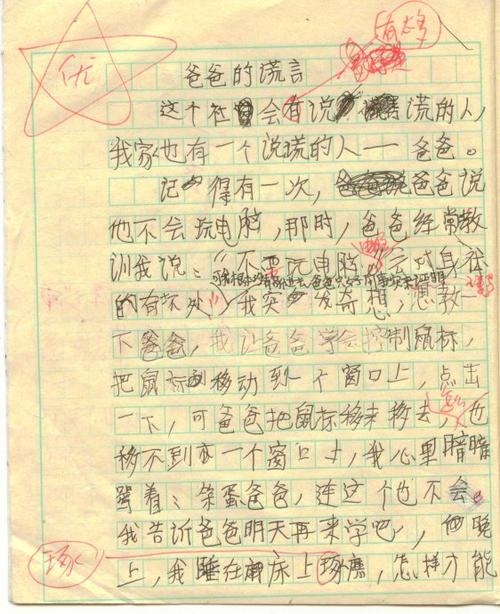 有太多
优
爸爸的谎言
这个社会有说谎的人，
我家也有一个说谎的人——爸爸。
记得有一次，爸爸说
他不会玩电脑，那时，爸爸经常教
训我说：“不要玩电脑，对身体
的有坏处”我突发奇想，想教一
下爸爸，我让爸爸学会控制鼠标，
把鼠标移动到一个窗口上，点击
一下，可爸爸把鼠标移来移去，也
移不到亦一个窗口上，我心里暗暗
骂着：笨蛋爸爸，连这个也不会。
我告诉爸爸明天再来学吧，但晚
琢
上，我睡在床上琢磨，怎样才能